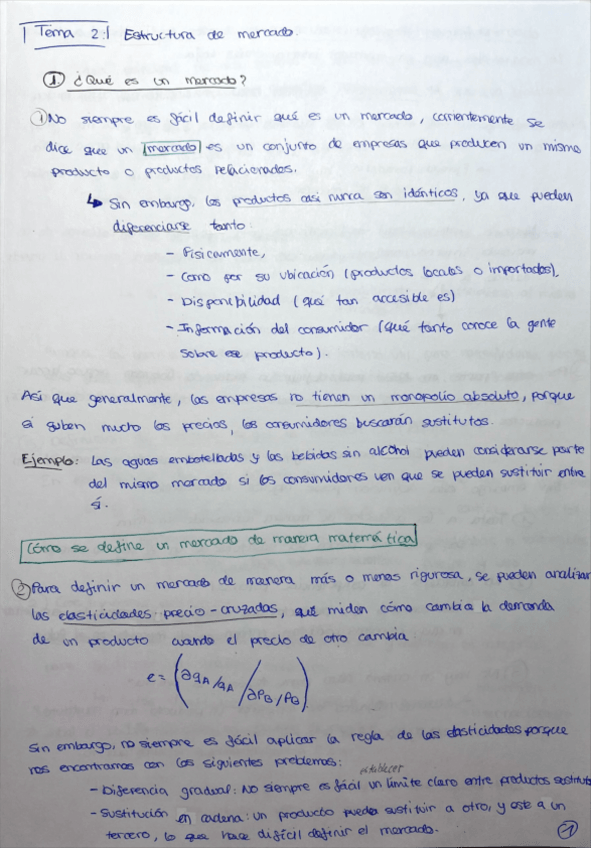 Tema 2: Estructura de mercado.
① ¿Qué es un mercado?
① No siempre es fácil definir qué es un mercado, corrientemente se
dice que un mercado es un conjunto de empresas que producen un mismo
producto o productos relacionados.
↳ Sin embargo, los productos casi nunca son idénticos, ya que pueden
diferenciarse tanto:
- Físicamente,
- Como por su ubicación (productos locales o importados),
- Disponibilidad (qué tan accesible es)
- Información del consumidor (qué tanto conoce la gente
sobre ese producto).
Así que generalmente, las empresas no tienen un monopolio absoluto, porque
si suben mucho los precios, los consumidores buscarán sustitutos.
Ejemplo: Las aguas embotelladas y las bebidas sin alcohol pueden considerarse parte
del mismo mercado si los consumidores ven que se pueden sustituir entre
sí.
Cómo se define un mercado de manera matemática
② Para definir un mercado de manera más o menos rigurosa, se pueden analizar
las elasticidades precio-cruzadas, que miden cómo cambia la demanda
de un producto cuando el precio de otro cambia:
e = (∂qA/qA / ∂PB/PB)
Sin embargo, no siempre es fácil aplicar la regla de las elasticidades porque
nos encontramos con los siguientes problemas:
- Diferencia gradual: No siempre es fácil establecer un límite claro entre productos sustitut
- Sustitución en cadena: un producto puede sustituir a otro, y este a un
tercero, lo que hace difícil definir el mercado.
①